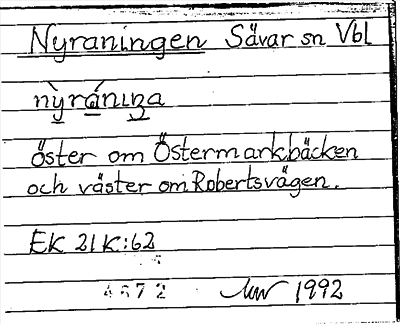 Nyraningen Sävar sn Vbl
nỳránıŋa
öster om Östermarkbäcken
och väster om Robertsvägen.
EK 21K:62
4572 1992